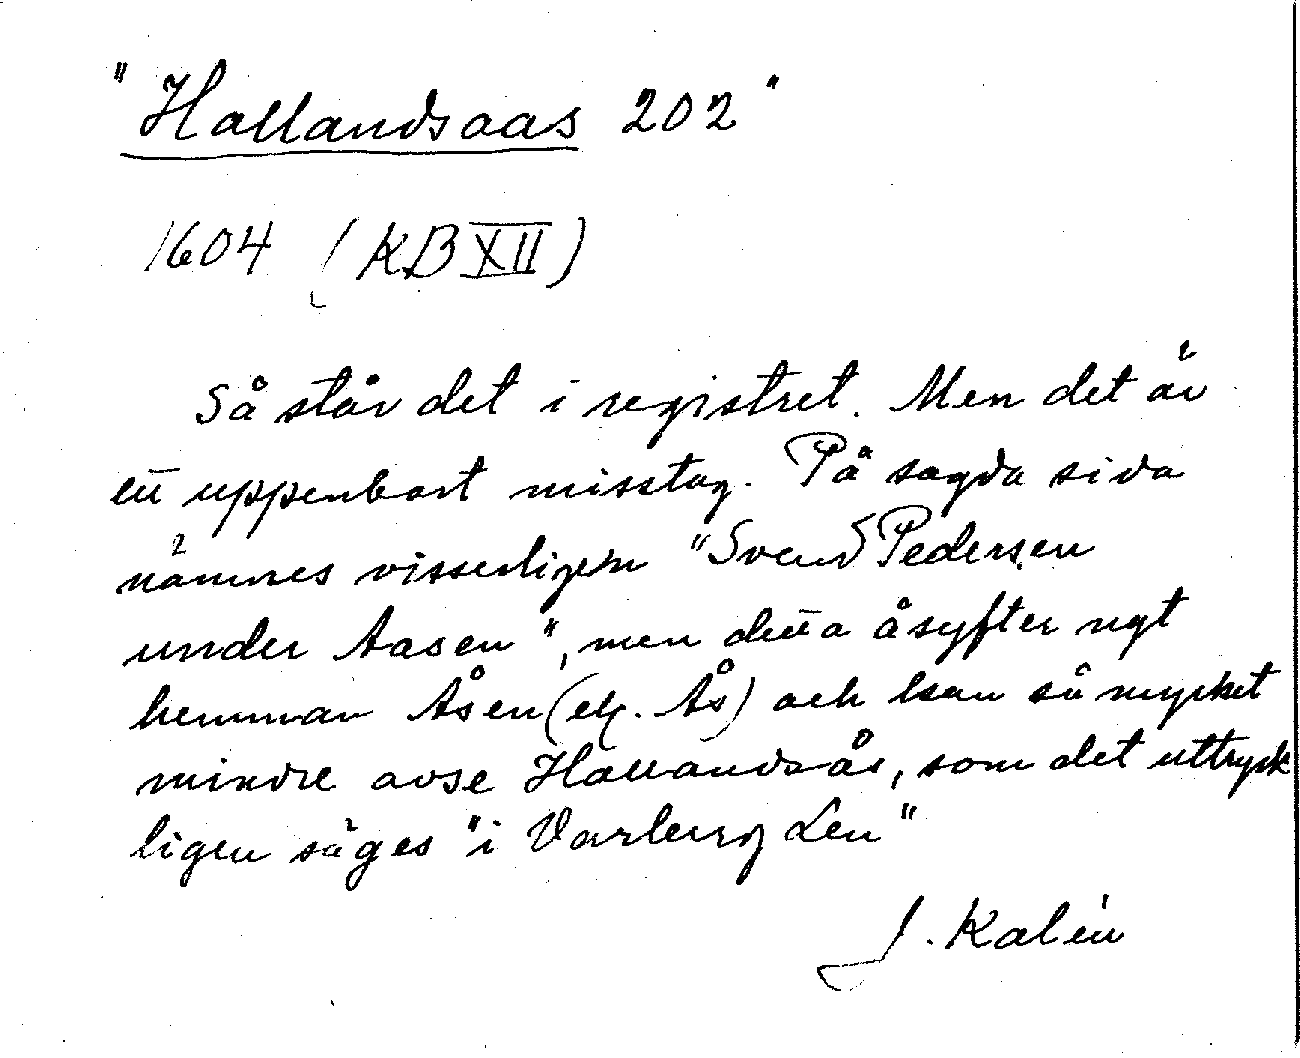 "Hallandsaas 202"
1604 (KB XII)
Så står det i registret. Men det är
ett uppenbart misstag. På sagda sida
nämnes visserligen "Svend Pedersen
under Aasen", men detta åsyfter ngt
hemman Åsen (el. Ås) och kan så mycket
mindre avse Hallandsås, som det uttryck
ligen säges "i Varberg Len"
J. Kalén